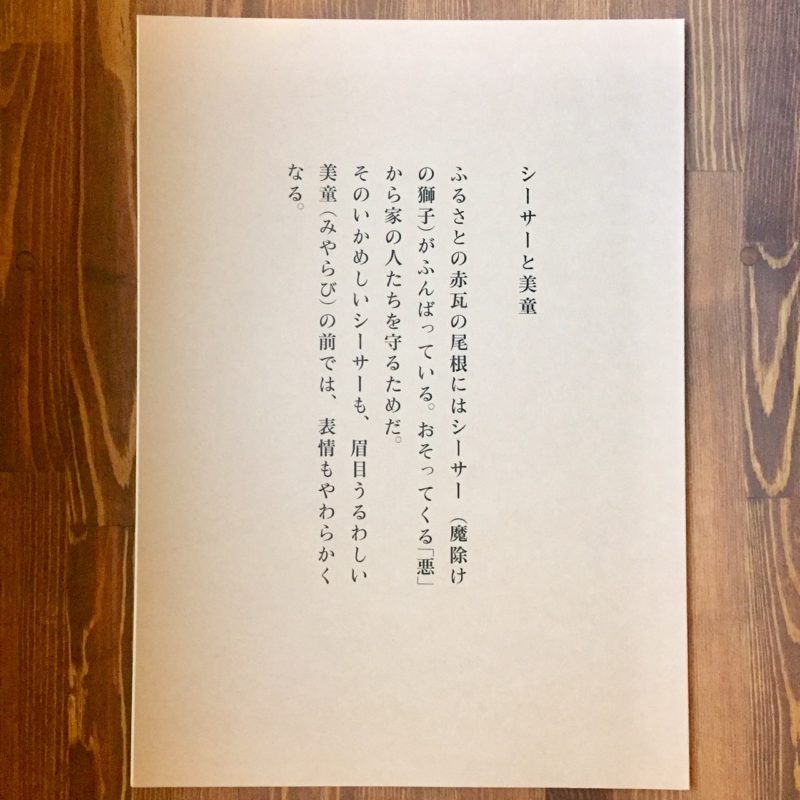 シーサーと美童
ふるさとの赤瓦の尾根にはシーサー（魔除け
の獅子）がふんばっている。おそってくる「悪」
から家の人たちを守るためだ。
そのいかめしいシーサーも、眉目うるわしい
美童（みやらび）の前では、表情もやわらかく
なる。